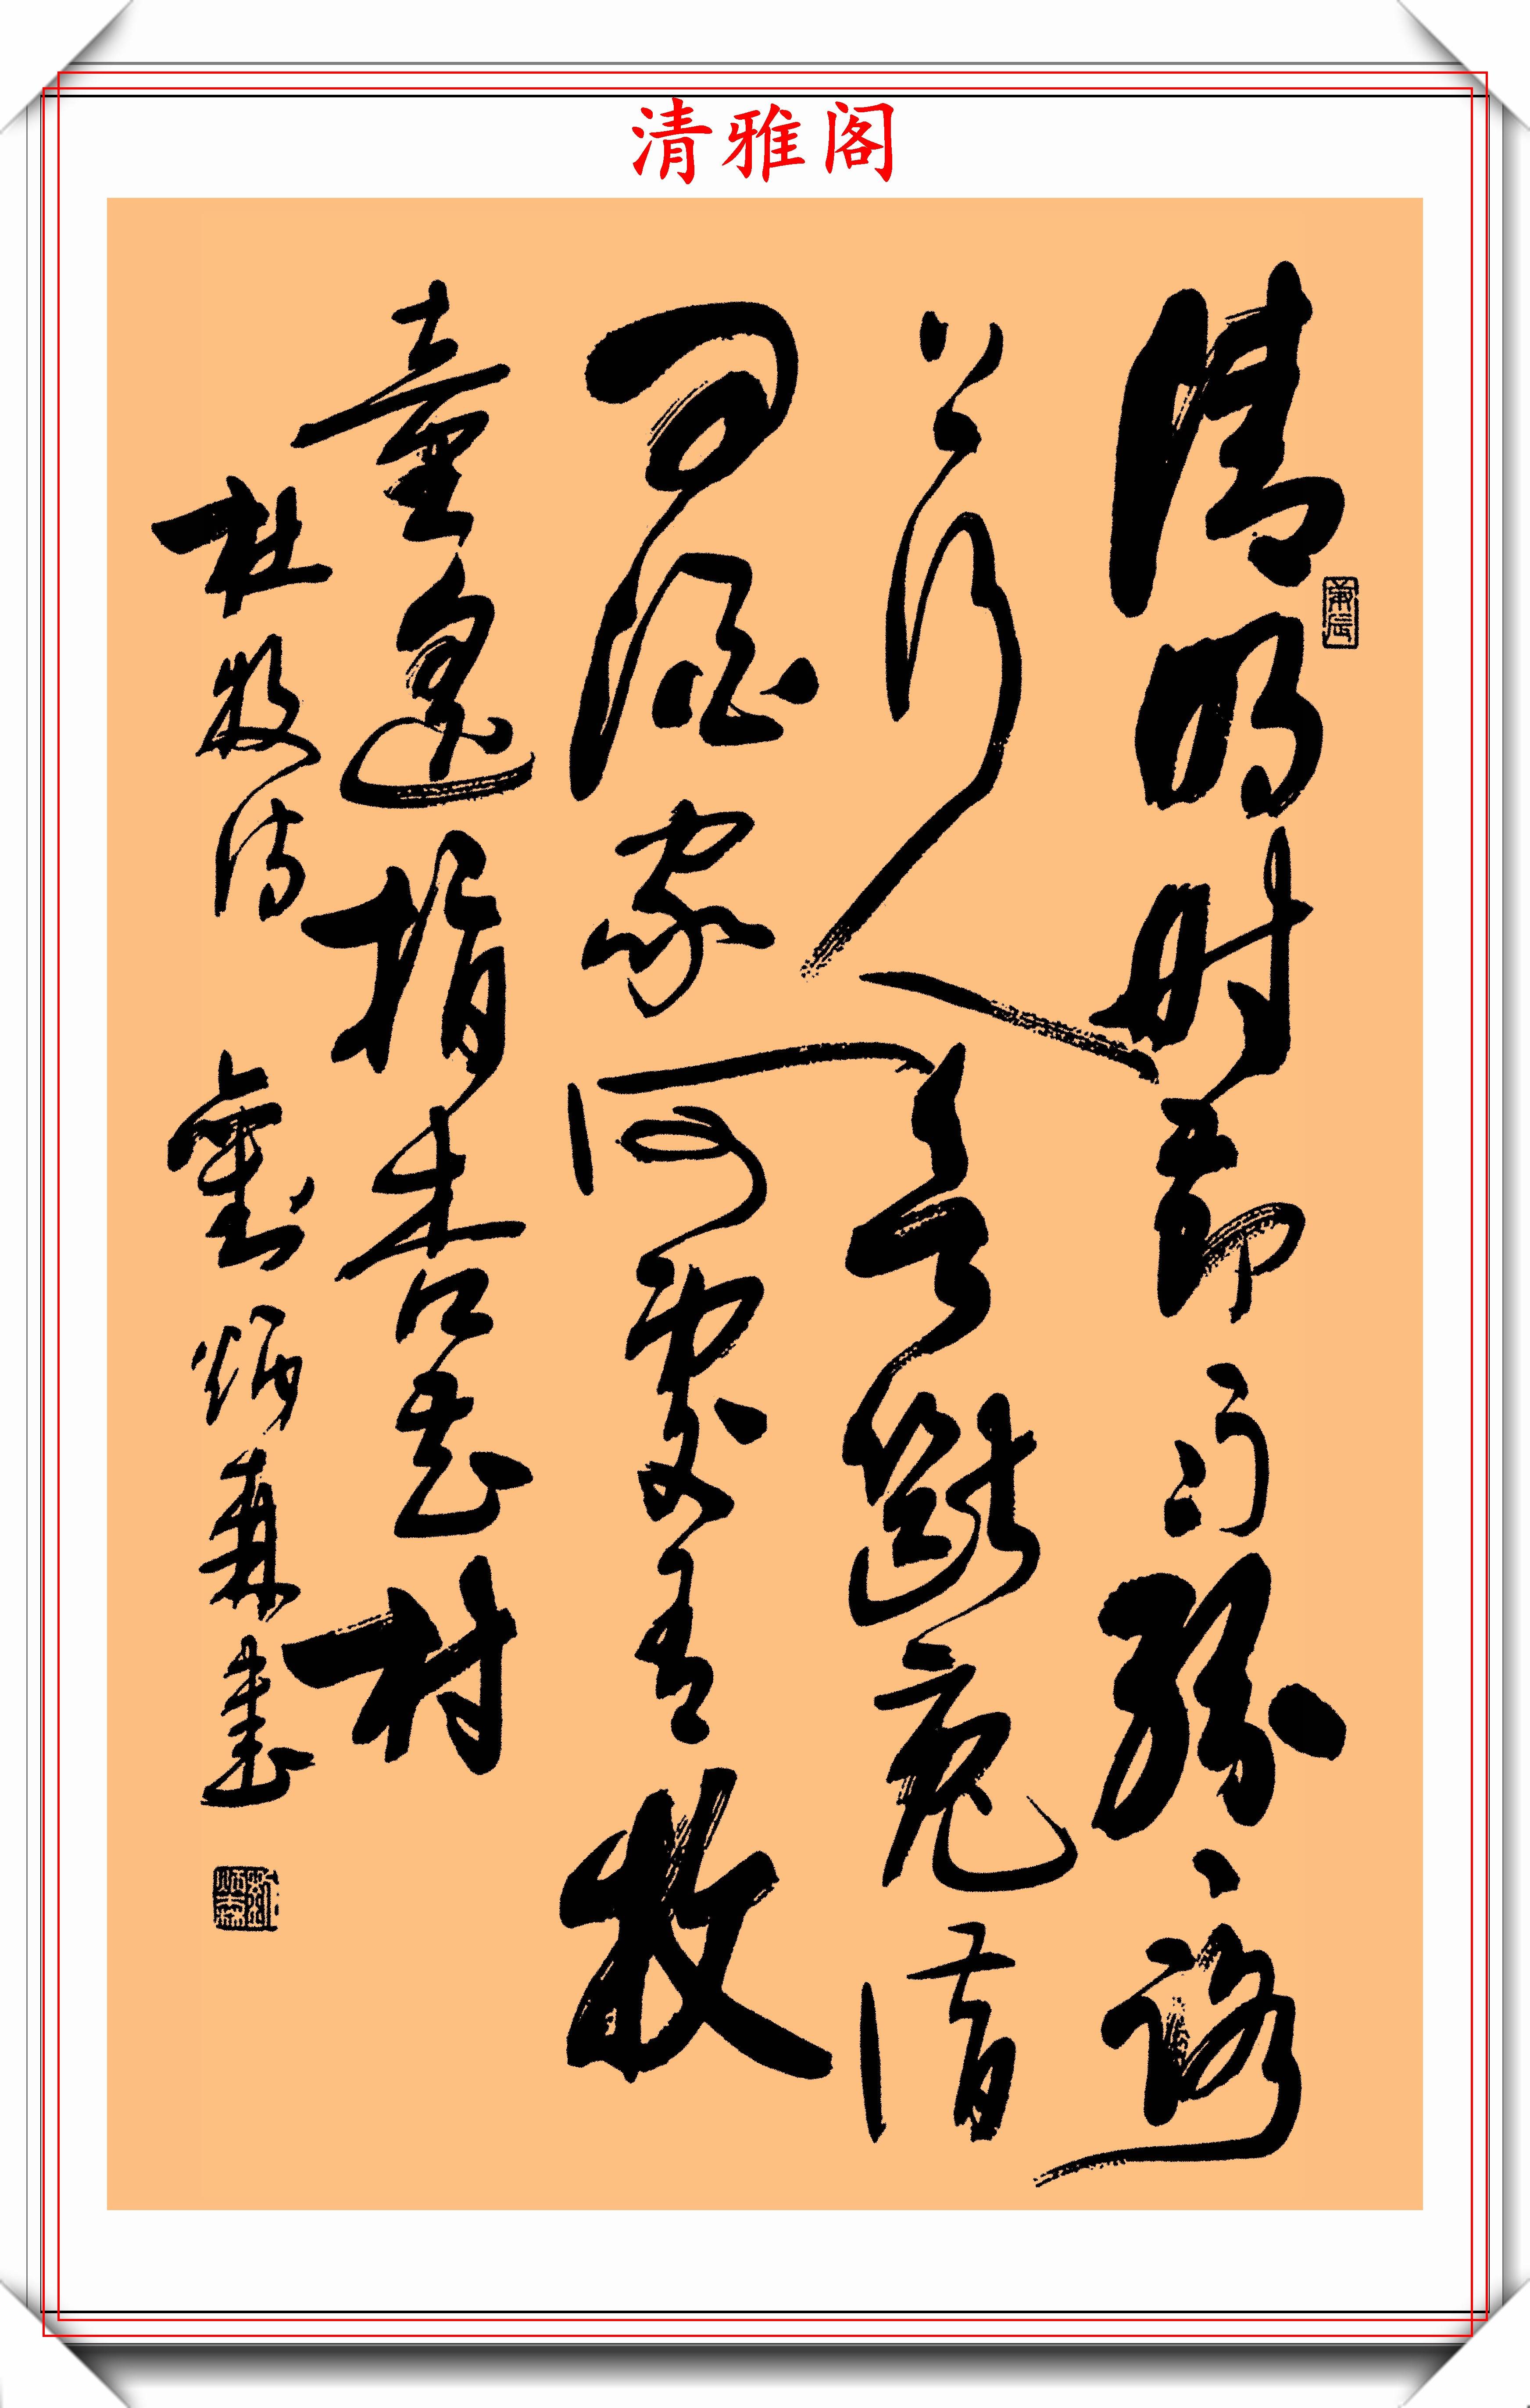 清雅阁
清明时節雨纷纷路
上行人欲斷魂借
问酒家何處有牧
童遥指杏花村
杜牧诗 炳森書